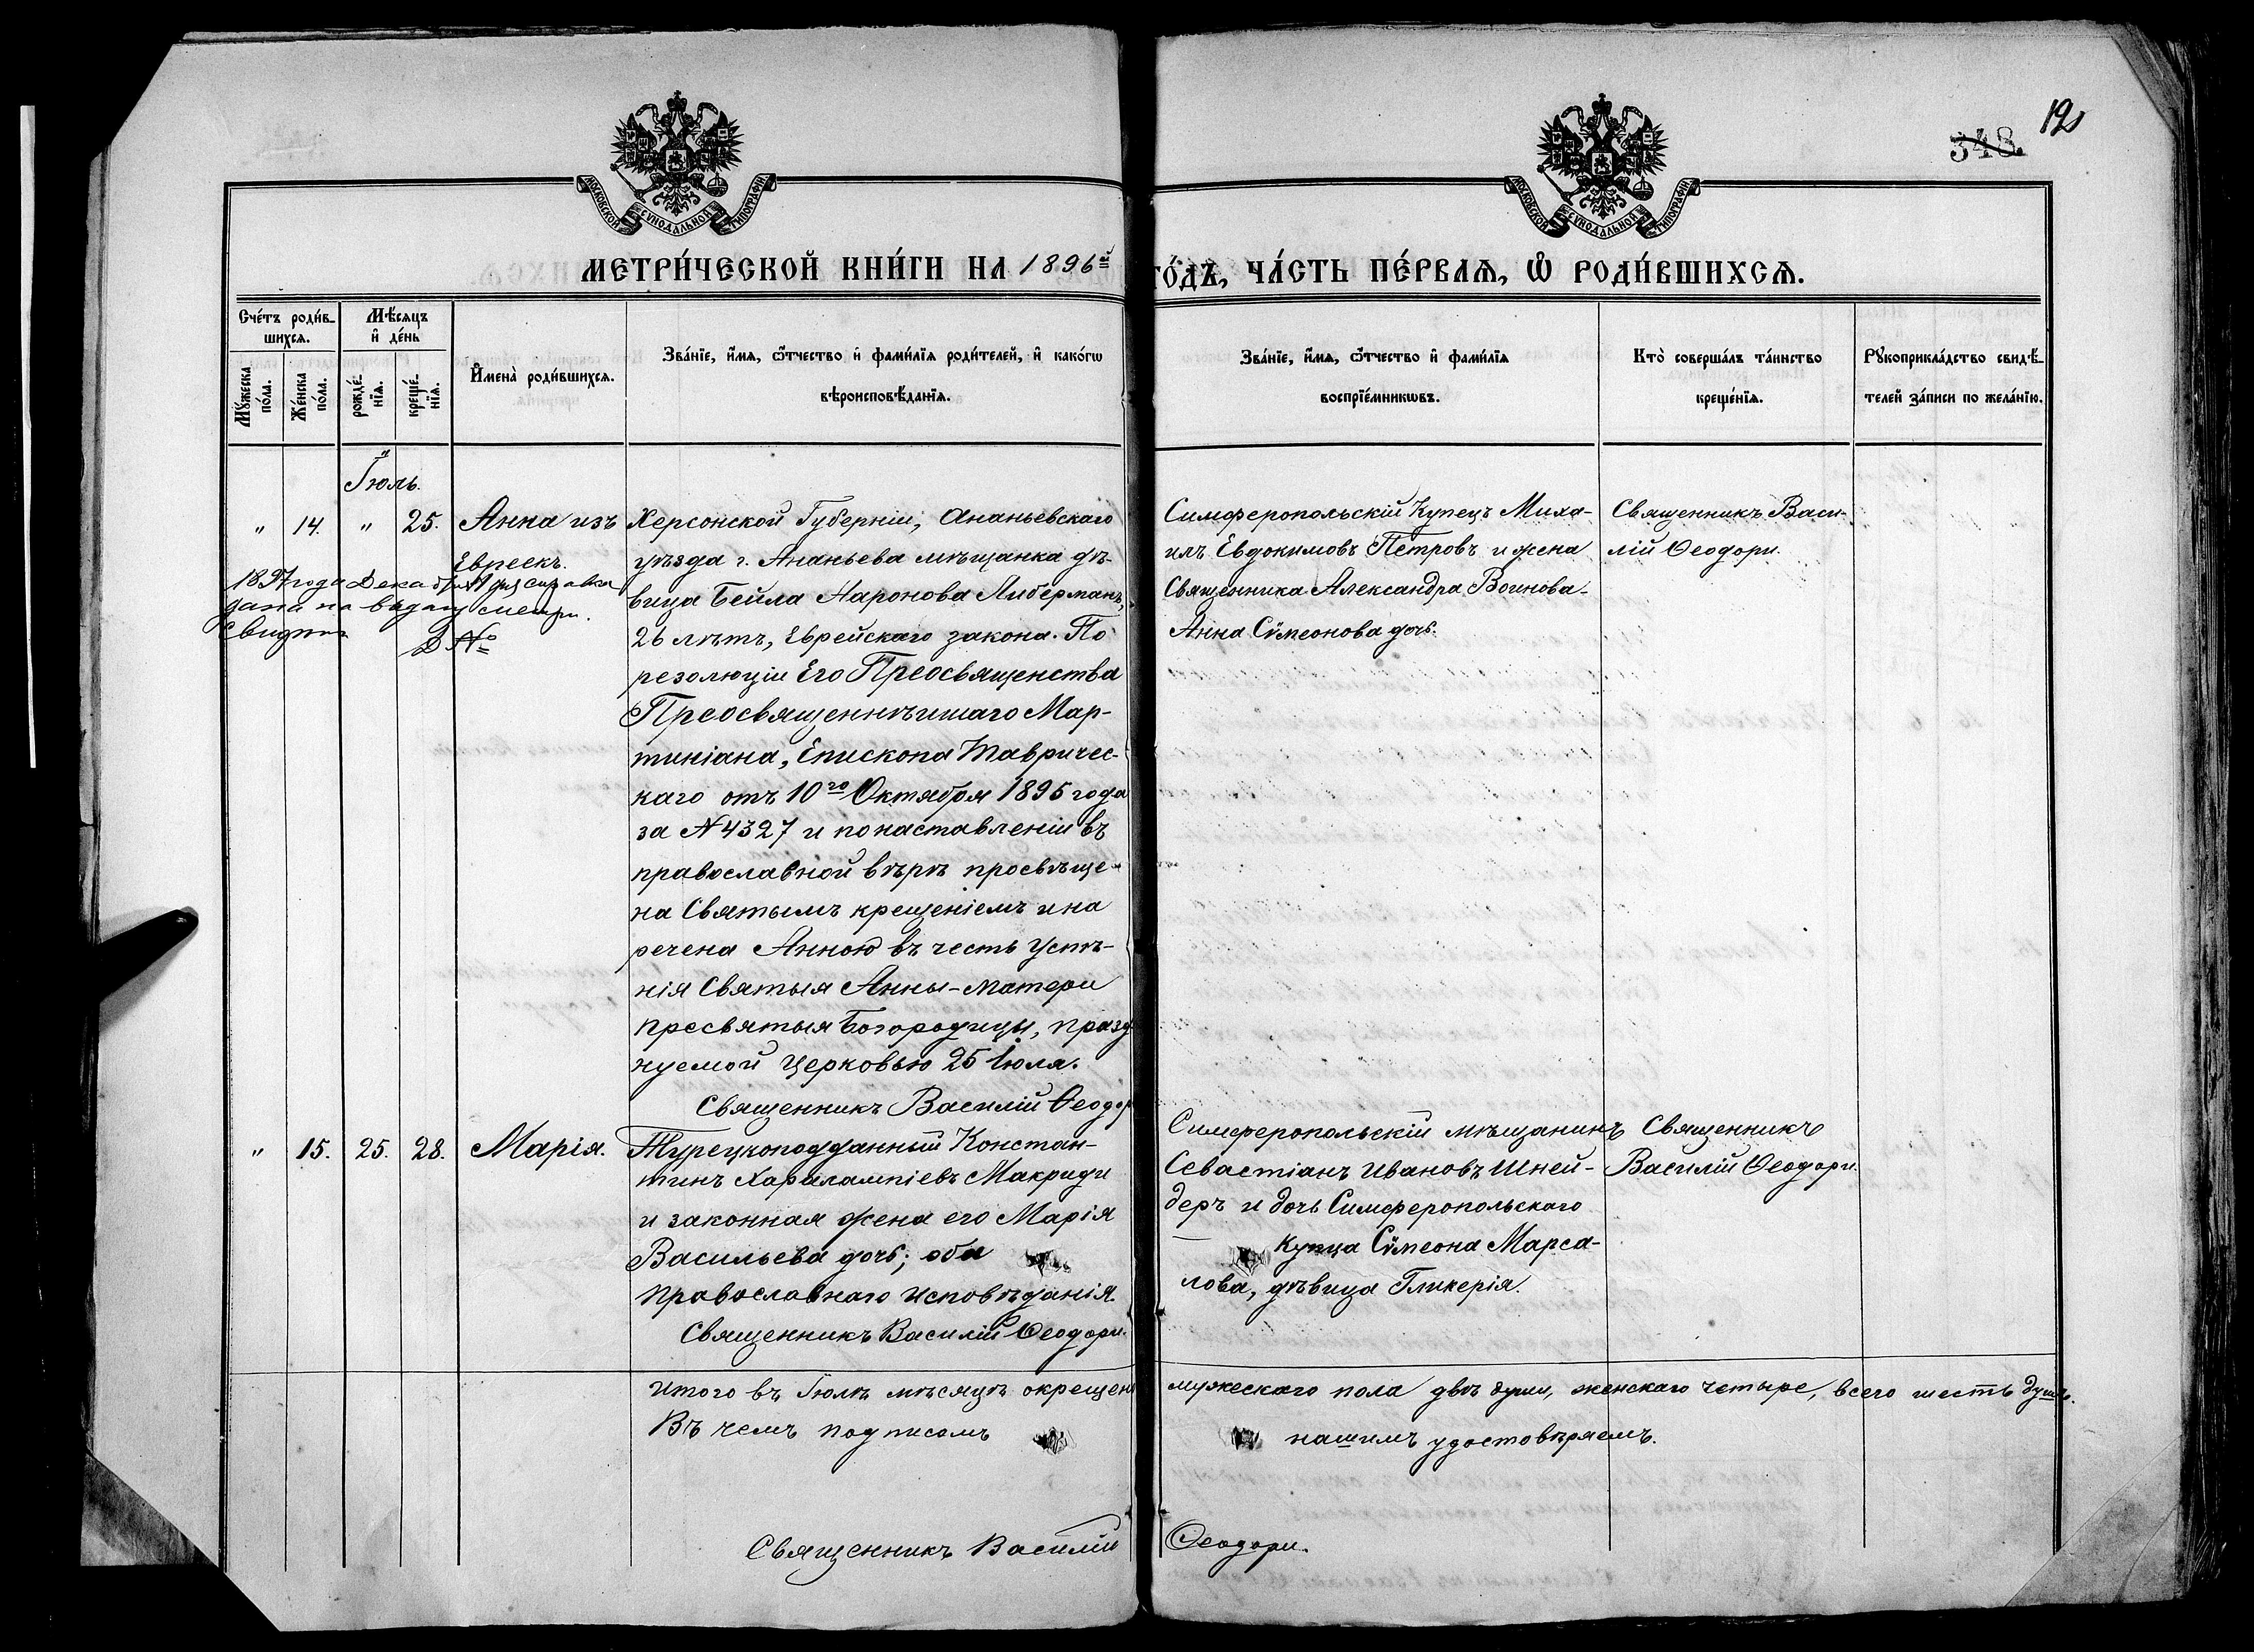 348.
12
МОСКОВСКОЙ СѴНОДАЛЬНОЙ ТИПОГРАФІИ
МОСКОВСКОЙ СѴНОДАЛЬНОЙ ТИПОГРАФІИ
МЕТРИ́ЧЕСКОЙ КНИ́ГИ НА 1896й ГО́ДЪ, ЧА́СТЬ ПЕ́РВАѦ, Ѡ҆ РОДИ́ВШИХСѦ.
Сче́тъ роди́в-
шихсѧ.
Мꙋ́жеска по́ла.
Же́нска по́ла.
Мѣ́сѧцъ и҆ де́нь
рожде́-нїѧ.
креще́-нїѧ.
И҆мена̀ роди́вшихсѧ.
Зва́нїе, и҆́мѧ, ѻ҆́тчество и҆ фами́лїѧ роди́телей, и҆ како́гѡ
вѣроисповѣ́данїѧ.
Зва́нїе, и҆́мѧ, ѻ҆́тчество и҆ фами́лїѧ
воспрїе́мникѡвъ.
Кто̀ соверша́лъ та́инство
креще́нїѧ.
Рꙋкоприкла́дство свидѣ́-
телей за́писи по жела́нїю.
Іюль.
" 14. " 25. Анна изъ
Евреекъ.
1897 года Декабря
дана на выдачу метри.
№
Херсонской Губерніи, Ананьевскаго
уѣзда г. Ананьева мѣщанка дѣ-
вица Бейла Ааронова Либерманъ,
26 лѣтъ, Еврейскаго закона. По
резолюціи Его Преосвященства
Преосвященнѣйшаго Мар-
тиніана, Епископа Тавричес-
каго отъ 10го Октября 1895 года
за N 4327 и по наставленіи въ
православной вѣрѣ просвѣще-
на Святымъ крещеніемъ и на
речена Анною въ честь Успѣ-
нія Святыя Анны-матери
пресвятыя Богородицы, празд
нуемой Церковью 25 Іюля.
Священникъ Василій Ѳеодор
Симферопольскій Купецъ Миха-
илъ Евдокимовъ Петровъ и жена
Священника Александра Воинова-
Анна Сѵмеонова дочь.
Священникъ Васи-
лій Ѳеодори.
" 15. 25. 28. Марія.
Турецкоподданный Констан-
тинъ Харалампіевъ Макриди
и законная жена его Марія
Васильева дочь; оба
Православнаго Исповѣданія.
Священникъ Василій Ѳеодори.
Симферопольскій мѣщанинъ
Севастіанъ Ивановъ Шней-
деръ и дочь Симферопольскаго
Купца Сѵмеона Марса-
лова, дѣвица Гликерія.
Священникъ
Василій Ѳеодори.
Итого въ Іюлѣ мѣсяцѣ окрещен мужескаго пола двѣ души, женскаго четыре, всего шесть душъ.
Въ чемъ подписомъ нашимъ удостовѣряемъ.
Священникъ Василій Ѳеодори.